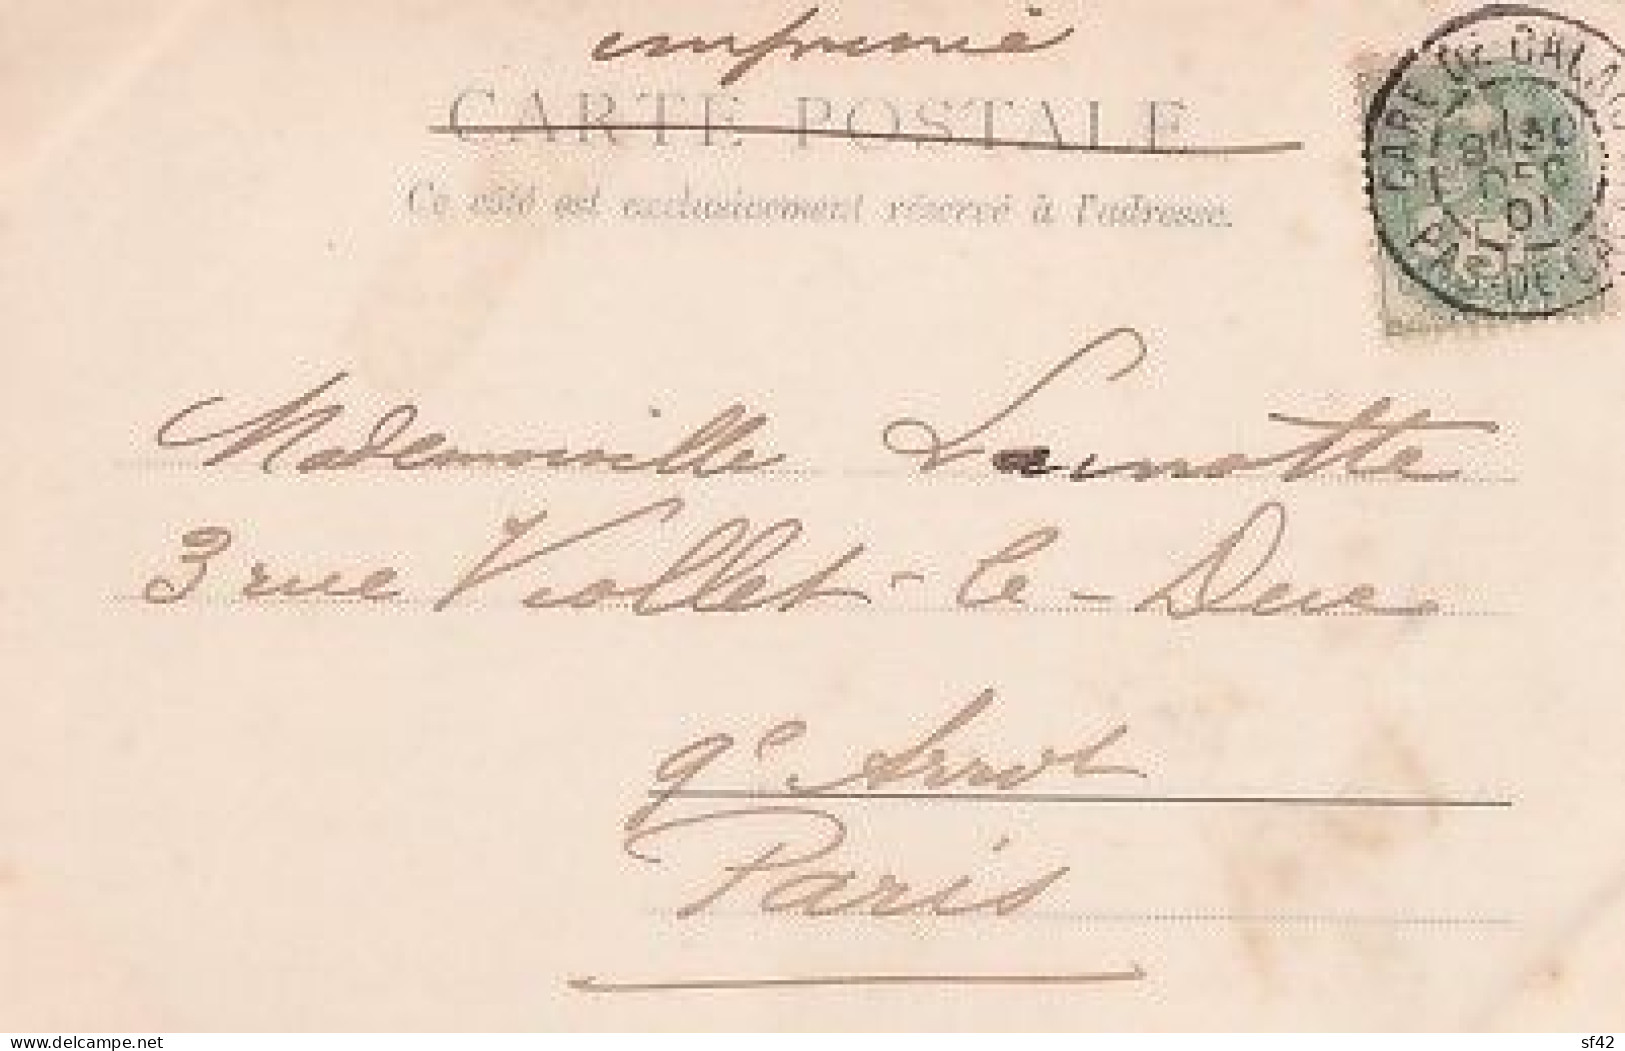 imprimé
CARTE POSTALE
Ce côté est exclusivement réservé à l'adresse.
GARE DE CALAIS
8H 30
DEC
01
PAS-DE-CA
Mademoiselle Lamotte
3 rue Viollet-le-Duc
9e Arrot
Paris
www.delcampe.net
sf42